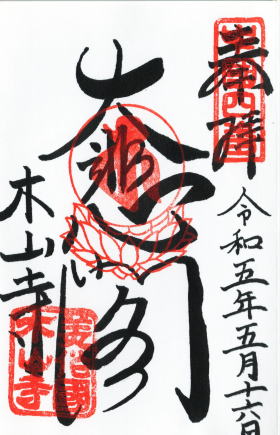 奉拝
令和五年五月十六日
大悲閣
木山寺
木山寺